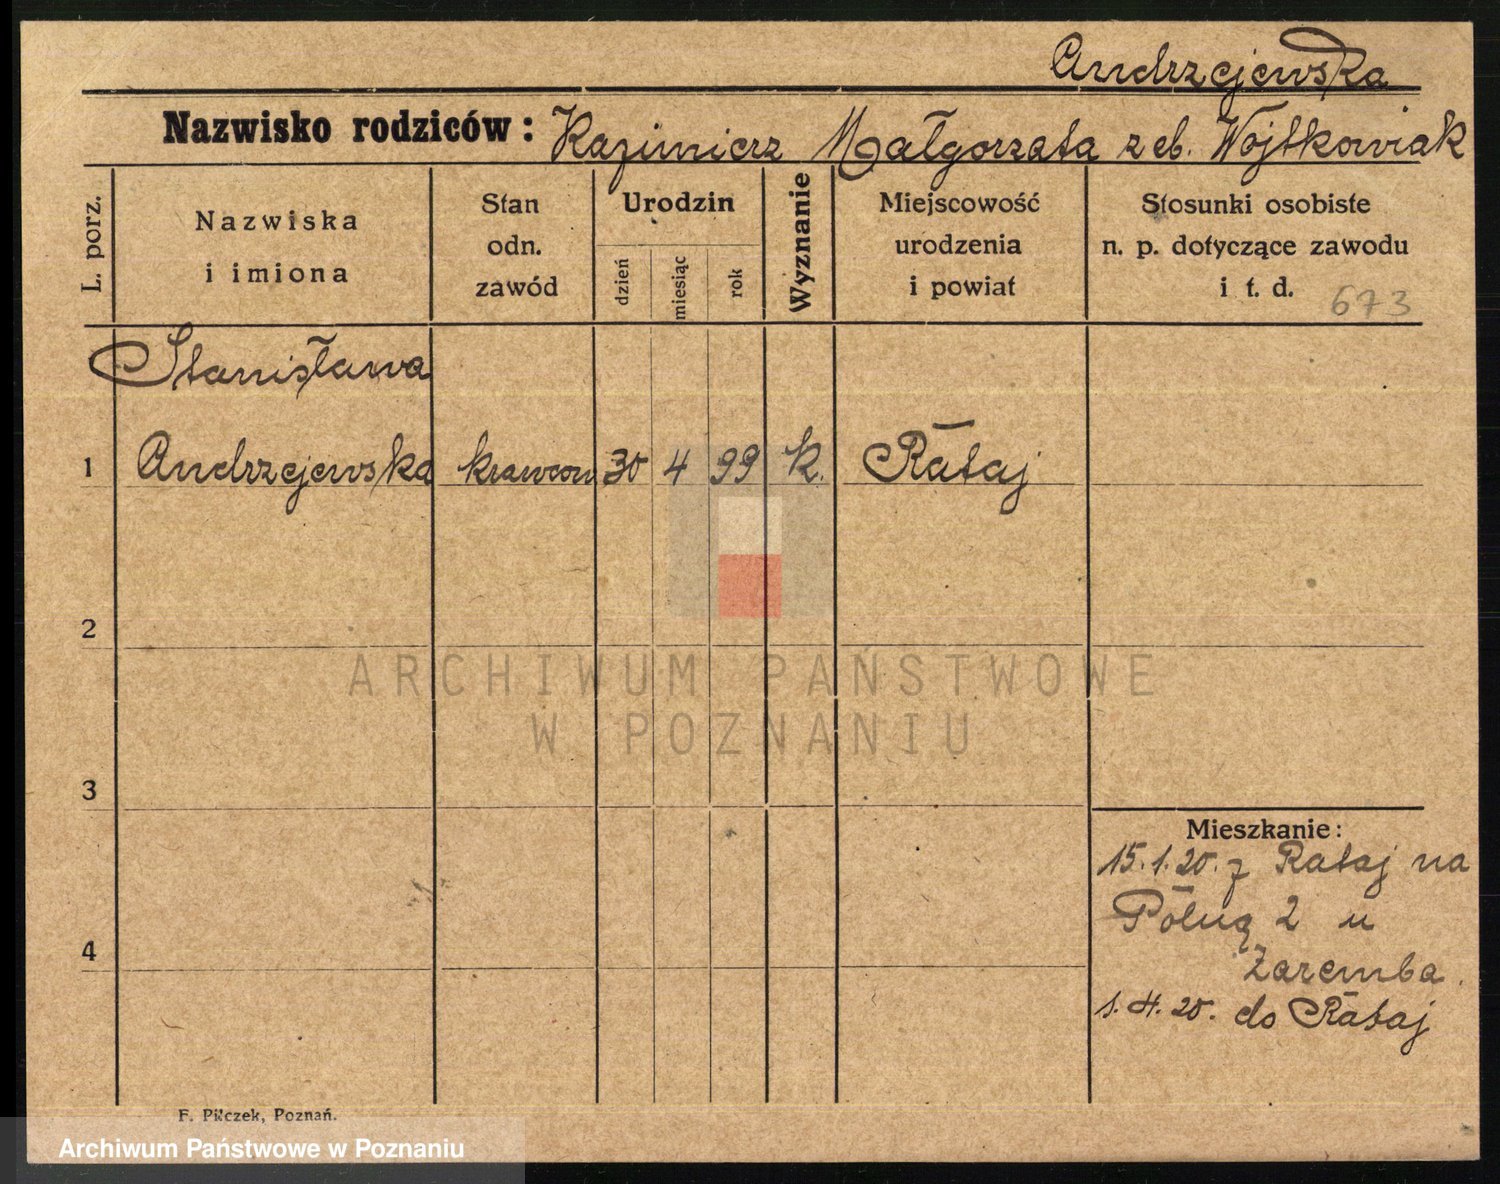 Andrzejewska
Nazwisko rodziców: Kazimierz Małgorzata z eb. Wojtkowiak
L. porz.
Nazwiska
i imiona
Stan
odn.
zawód
Urodzin
dzień
miesiąc
rok
Wyznanie
Miejscowość
urodzenia
i powiat
Stosunki osobiste
n. p. dotyczące zawodu
i t. d. 673
Stanisława
1 Andrzejewska krawcow 30 4 99 k. Rataj
2
ARCHIWUM PAŃSTWOWE
W POZNANIU
3
Mieszkanie:
15.1.20. z Rataj na
Polną 2 u
4
Zaremba.
1.4.20. do Rataj
F. Pilczek, Poznań.
Archiwum Państwowe w Poznaniu